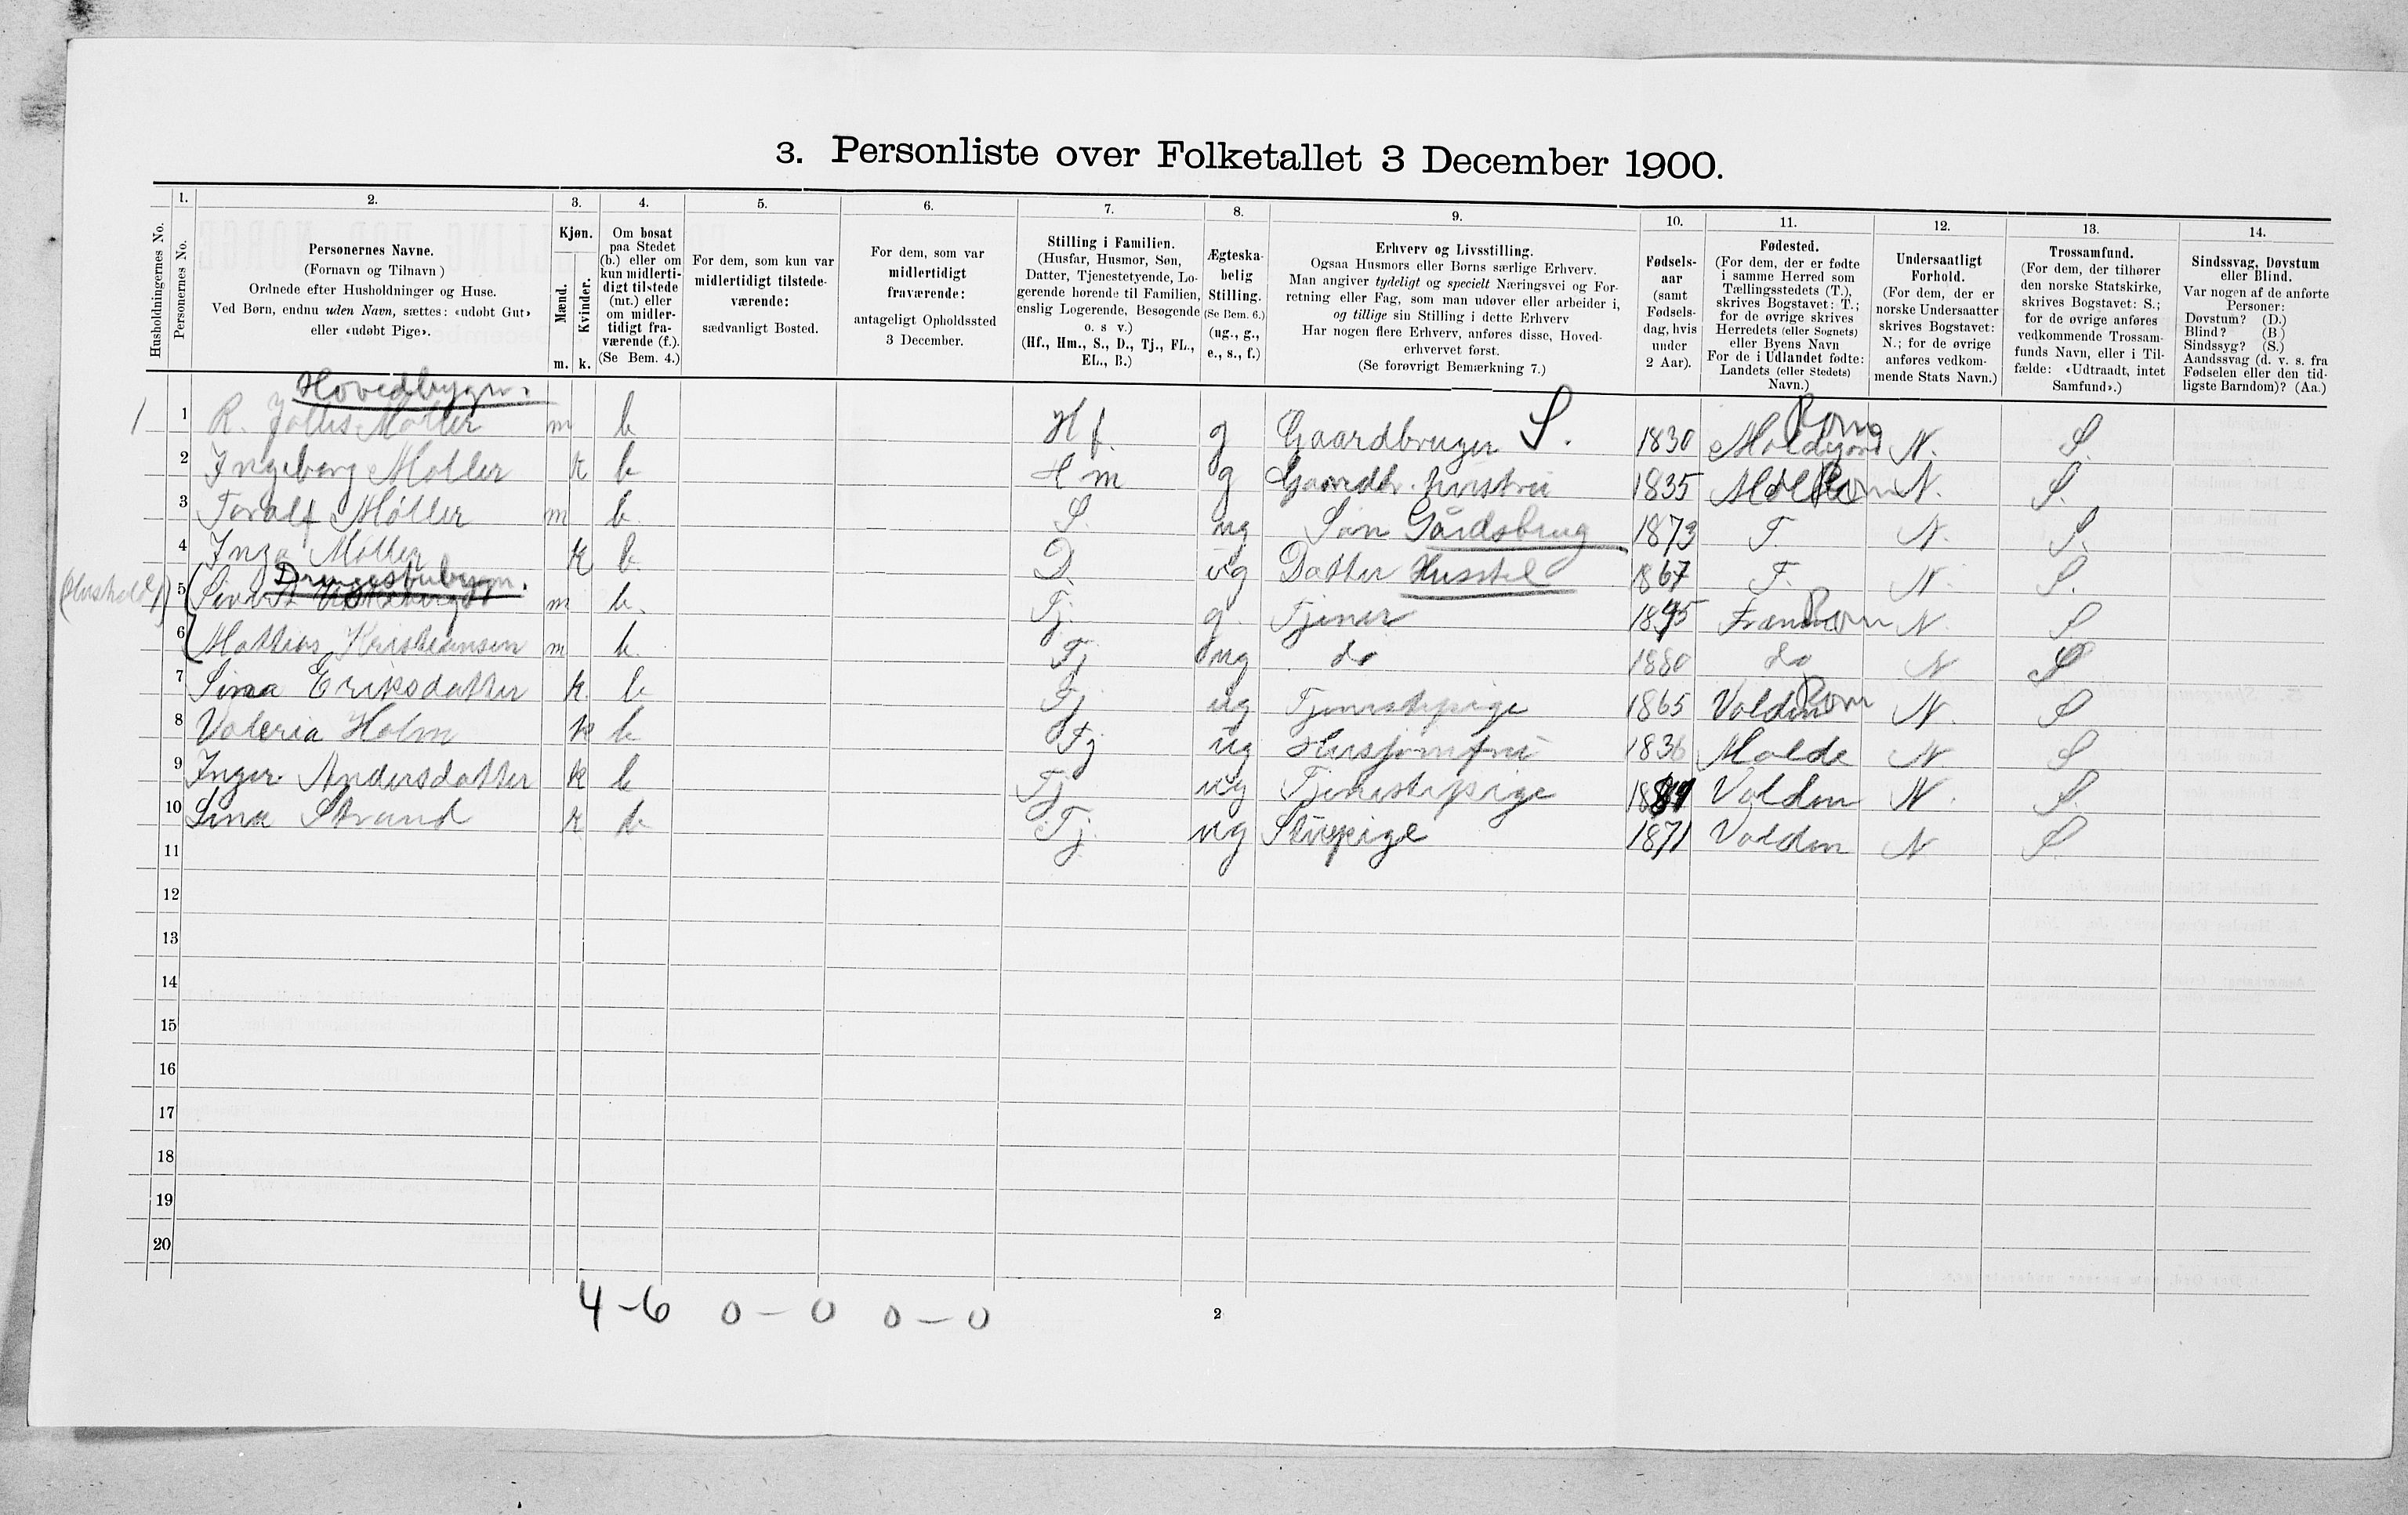 3. Personliste over Folketallet 3 December 1900.
Husholdningernes No.
1. Personernes No.
2. Personernes Navne.
(Fornavn og Tilnavn)
Ordnede efter Husholdninger og Huse.
Ved Børn, endnu uden Navn, sættes: «udøbt Gut»
eller «udøbt Pige».
3. Kjøn.
Mænd. Kvinder.
m. k.
4. Om bosat
paa Stedet
(b.) eller om
kun midlerti-
digt tilstede
(mt.) eller
om midler-
tidigt fra-
værende (f.).
(Se Bem. 4.)
5. For dem, som kun var
midlertidigt tilstede-
værende:
sædvanligt Bosted.
6. For dem, som var
midlertidigt
fraværende:
antageligt Opholdssted
3 December.
7. Stilling i Familien.
(Husfar, Husmor, Søn,
Datter, Tjenestetyende, Lo-
gerende hørende til Familien,
enslig Logerende, Besøgende
o. s v.)
(Hf., Hm., S., D., Tj., FL.,
EL., B.)
8. Ægteska-
belig
Stilling.
(Se Bem. 6.)
(ug., g.,
e., s., f.)
9. Erhverv og Livsstilling.
Ogsaa Husmors eller Børns særlige Erhverv.
Man angiver tydeligt og specielt Næringsvei og For-
retning eller Fag, som man udøver eller arbeider i,
og tillige sin Stilling i dette Erhverv
Har nogen flere Erhverv, anføres disse, Hoved-
erhvervet først.
(Se forøvrigt Bemærkning 7.)
10. Fødsels-
aar
(samt
Fødsels-
dag, hvis
under
2 Aar).
11. Fødested.
(For dem, der er fødte
i samme Herred som
Tællingsstedets (T.),
skrives Bogstavet: T.;
for de øvrige skrives
Herredets (eller Sognets)
eller Byens Navn
For de i Udlandet fødte:
Landets (eller Stedets)
Navn.)
12. Undersaatligt
Forhold.
(For dem, der er
norske Undersaatter
skrives Bogstavet:
N.; for de øvrige
anføres vedkom-
mende Stats Navn.)
13. Trossamfund.
(For dem, der tilhører
den norske Statskirke,
skrives Bogstavet: S.;
for de øvrige anføres
vedkommende Trossam-
funds Navn, eller i Til-
fælde: «Udtraadt, intet
Samfund».)
14. Sindssvag, Døvstum
eller Blind.
Var nogen af de anførte
Personer:
Døvstum? (D.)
Blind? (B.)
Sindssyg? (S.)
Aandssvag (d. v. s. fra
Fødselen eller den tid-
ligste Barndom)? (Aa.)
Hovedbygn.
1 1 R. Møller m b Hf. g Gaardbruger S. 1830 Rom N. S.
2 Ingeborg Møller k b Hm g Gaardbr. hustru 1835 Rom N. S.
3 Toralf Møller m b. S. ug Søn Gårdsbrug 1873 T. N. S.
4 Inga Møller k b. D. ug Datter Husstel 1867 T. N. S.
Drengestubygn.
(Hushold 1) 5 m b. Tj. g. Tjener Rom N. S
6 Mattias Kristiansen m b. Tj ug do 1880 do N S
7 Sina Eriksdatter k. b Tj ug Tjenestepige 1865 Volden Rom N. S
8 Valeria Holm k b Tj ug Husjomfru 1836 Molde N. S
9 Inger Andersdatter k b Tj ug Tjenestepige Volden N. S.
10 Sina Strand k b Tj. ug Stuepige 1871 Volden N S.
11
12
13
14
15
16
17
18
19
20
4-6 0-0 0-0
2